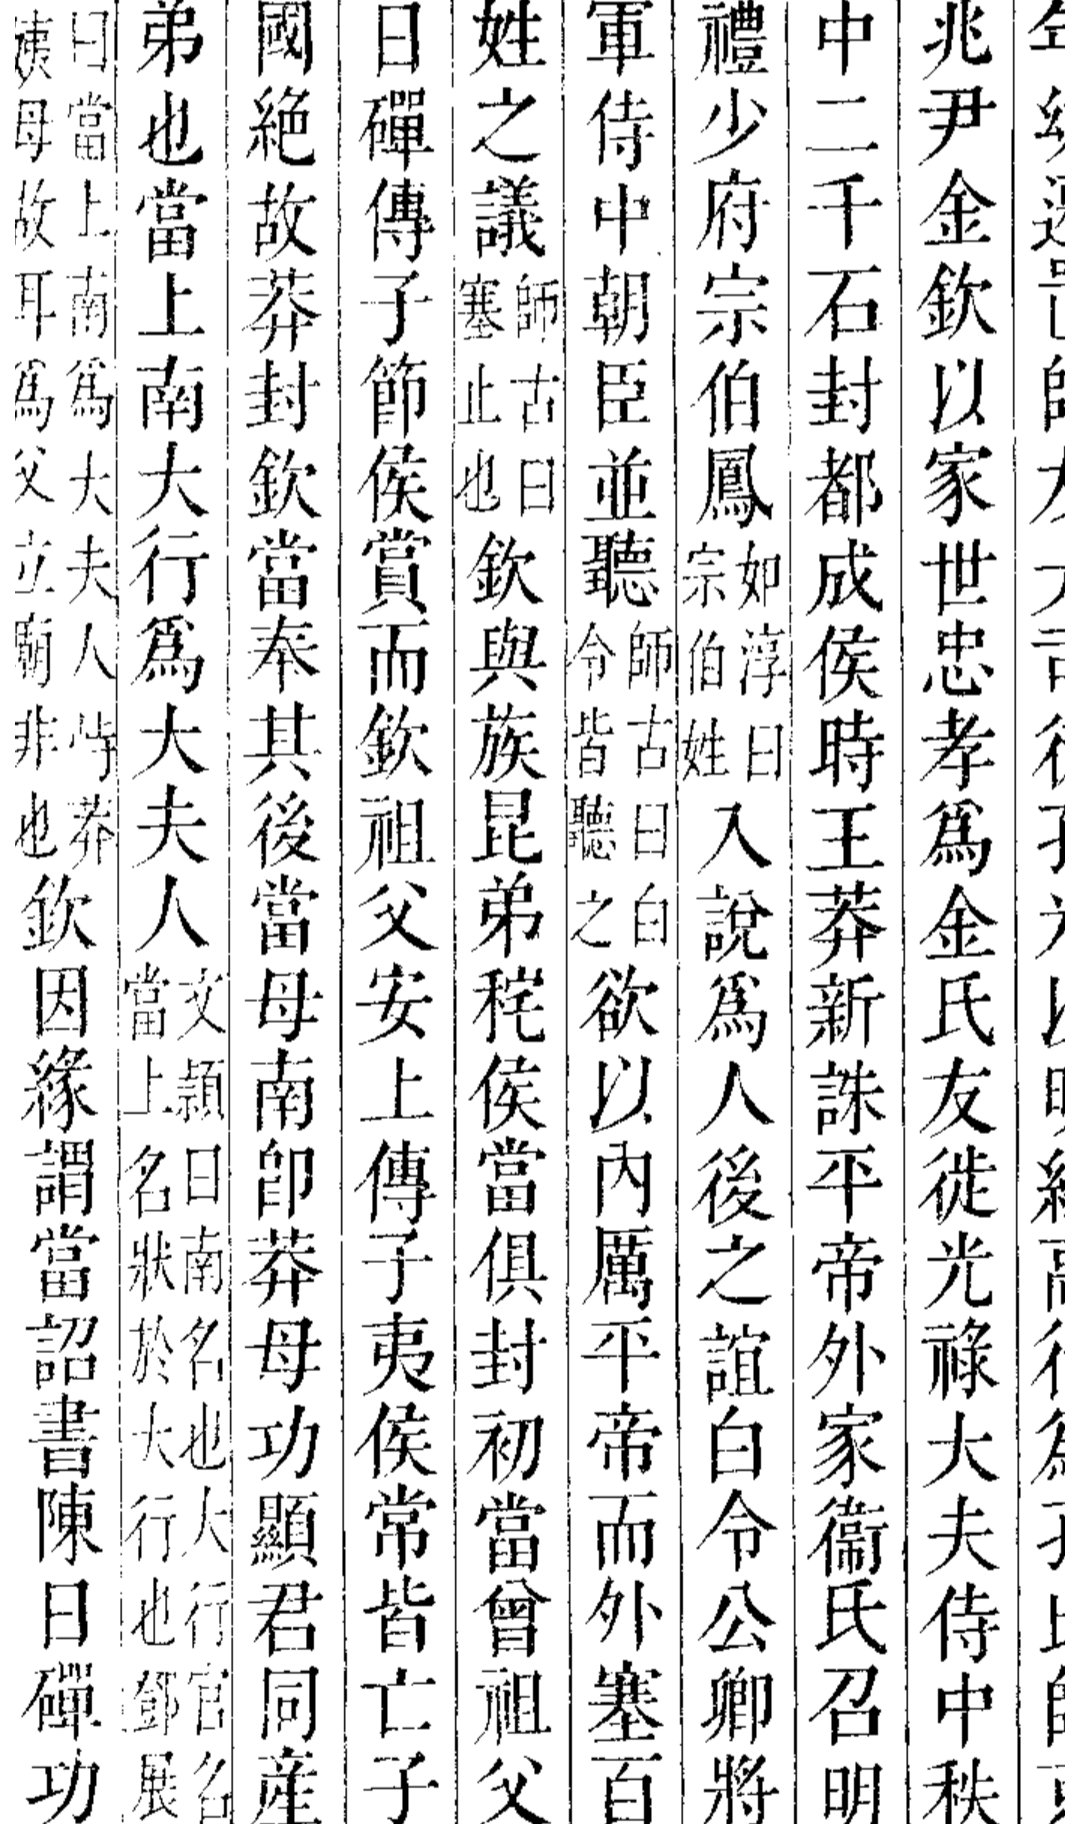 兆尹金欽以家世忠孝爲金氏友徙光祿大夫侍中秩
中二千石封都成侯時王莽新誅平帝外家衞氏召明
禮少府宗伯鳳如淳曰宗伯姓入說爲人後之誼白令公卿將
軍侍中朝臣並聽師古曰白令皆聽之欲以內厲平帝而外塞百
姓之議師古曰塞止也欽與族昆弟秺侯當俱封初當曾祖父
日磾傳子節侯賞而欽祖父安上傳子夷侯常皆亡子
國絶故莽封欽當奉其後當母南卽莽母功顯君同産
弟也當上南大行爲大夫人文穎曰南名也大行官名當上名狀於大行也鄧展
曰當上南爲大夫人恃莽姨母故耳爲父立廟非也欽因緣謂當詔書陳日磾功